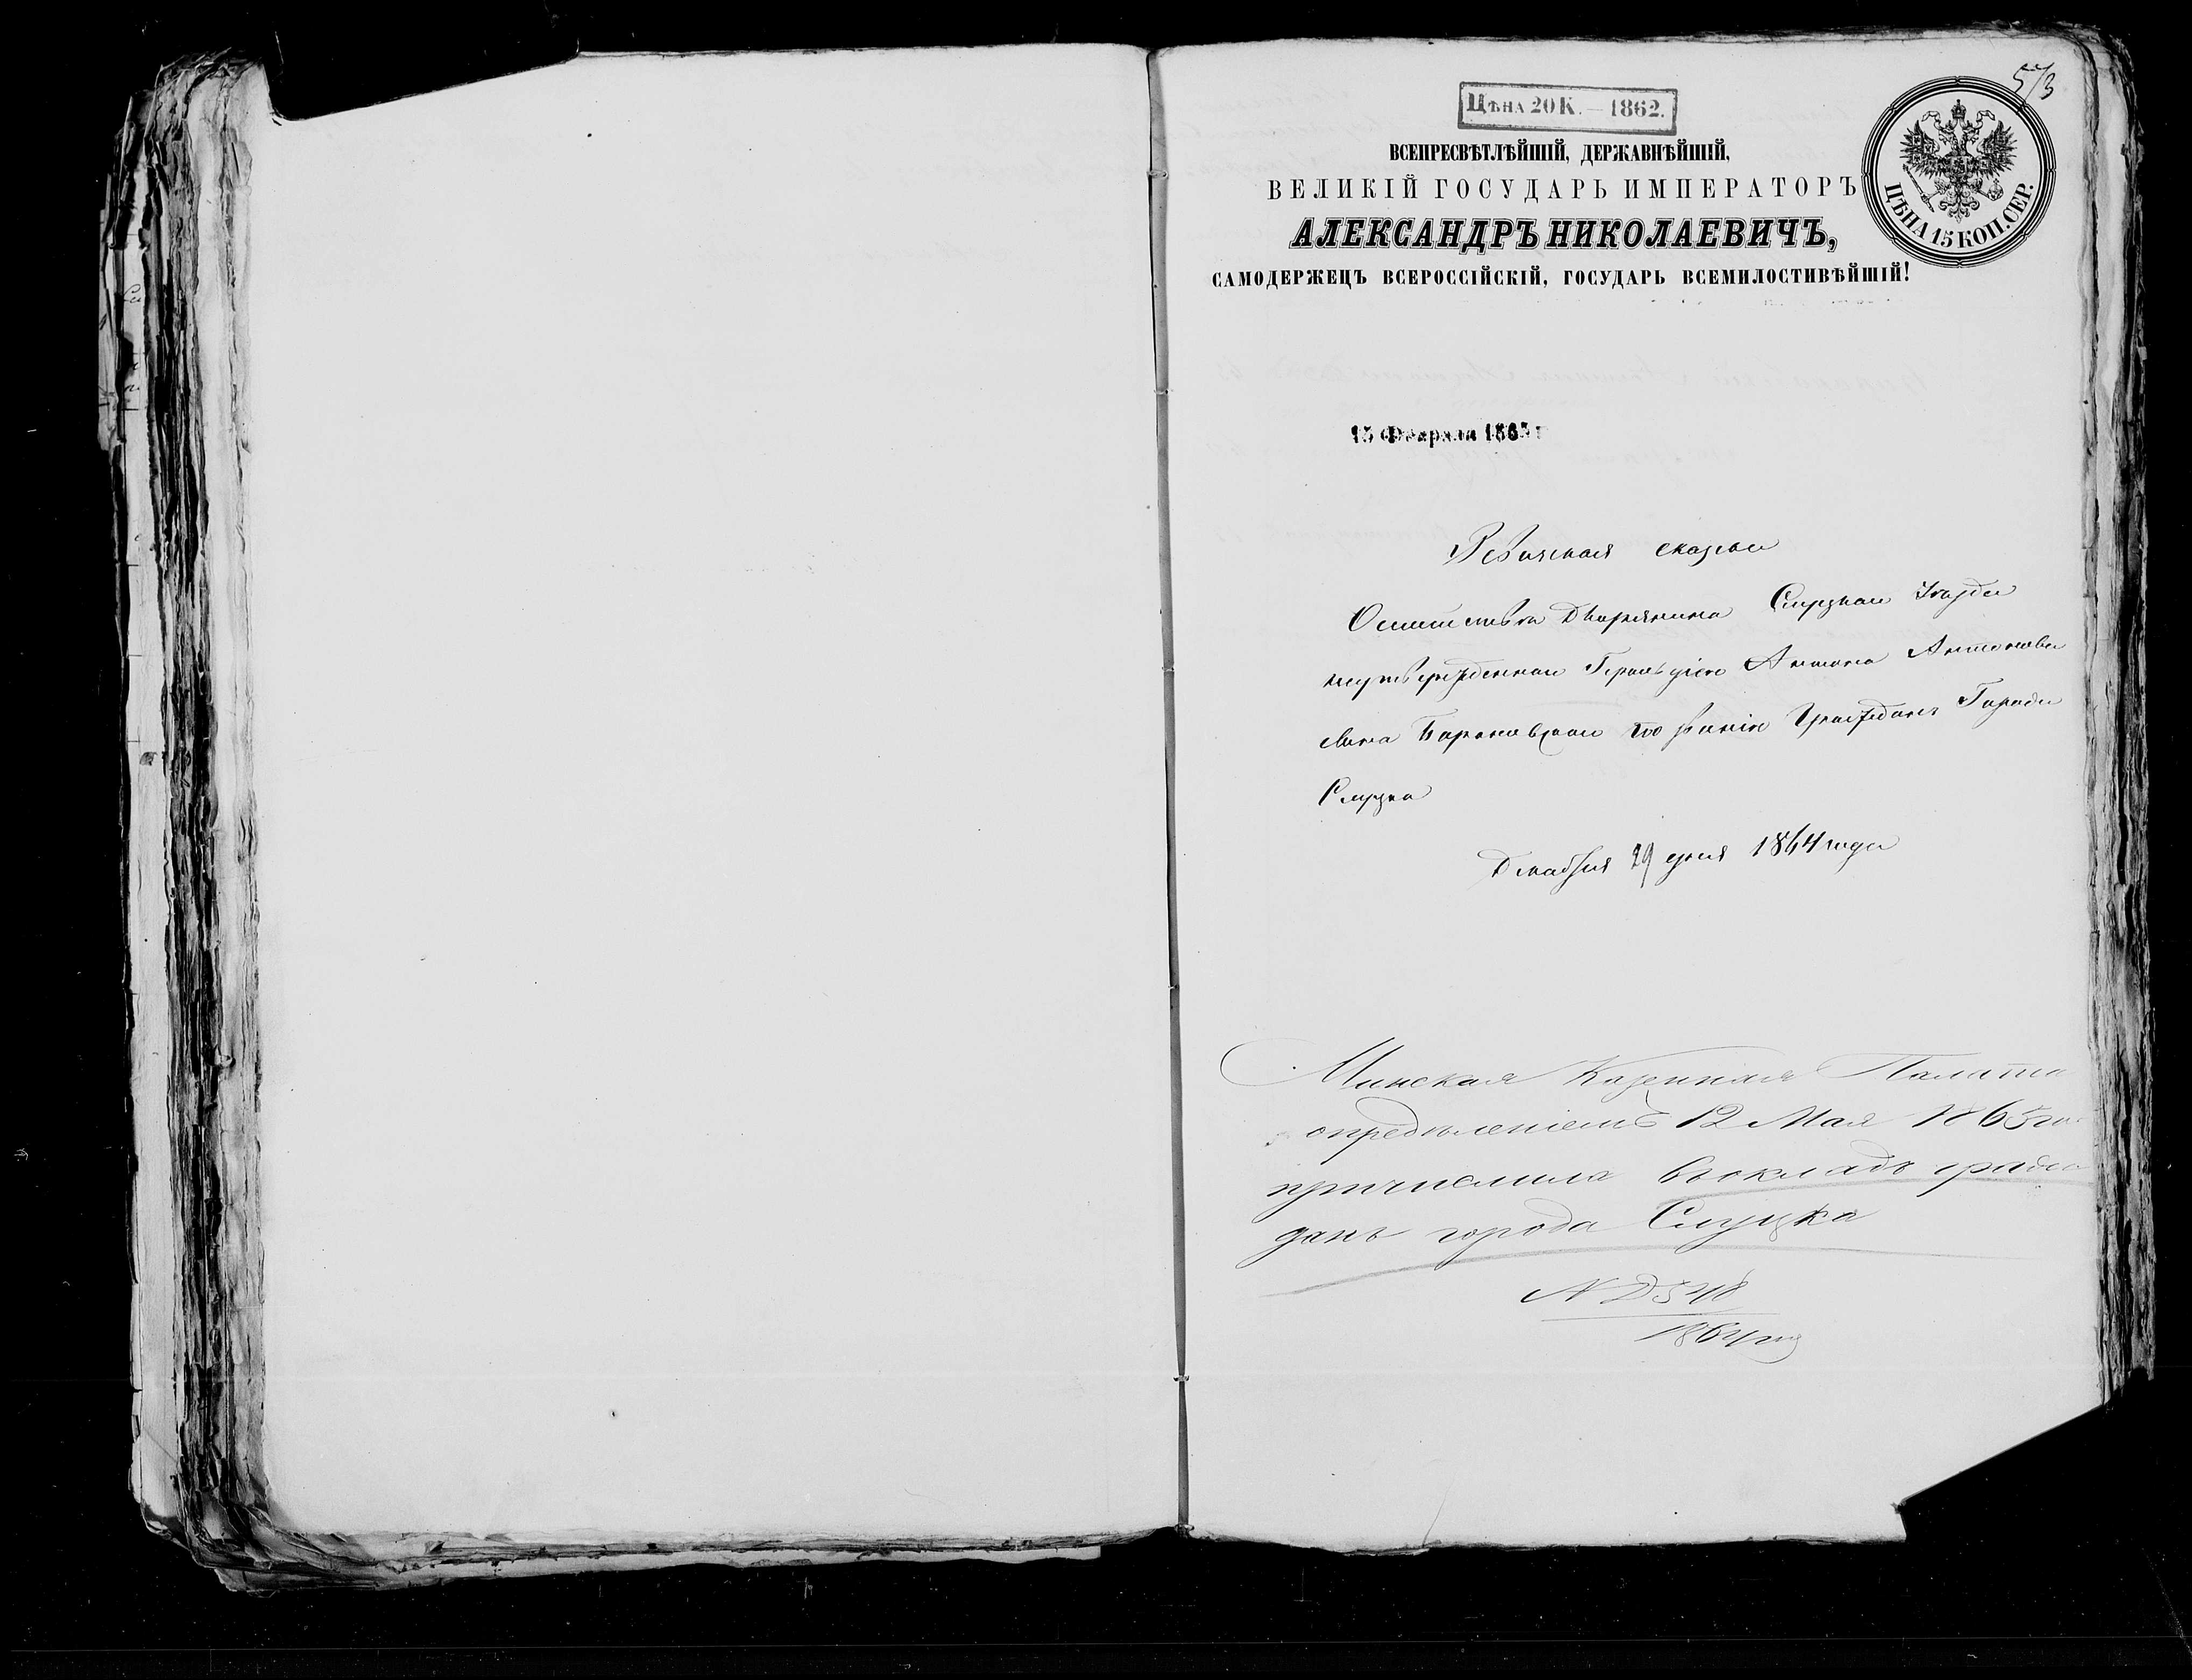 573
Цѣна 20 К. — 1862.
ВСЕПРЕСВѢТЛѢЙШІЙ, ДЕРЖАВНѢЙШІЙ,
ВЕЛИКІЙ ГОСУДАРЬ ИМПЕРАТОРЪ
АЛЕКСАНДРЪ НИКОЛАЕВИЧЪ,
САМОДЕРЖЕЦЪ ВСЕРОССІЙСКІЙ, ГОСУДАРЬ ВСЕМИЛОСТИВѢЙШІЙ!
ЦѢНА 15 КОП. СЕР.
15 Февраля 1865 г
Ревизская сказка
О семействѣ Дворянина Слуцкаго Уѣзда
неутвержденнаго Герольдіею Антона Антонова
сына Барановскаго званія Гражданъ Города
Слуцка
Декабря 29 дня 1864 года
Минская Казенная Палата
опредѣленіемъ 12 Мая 1865 го
причислила въ окладъ граж
данъ города Слуцка
N Д 548
1864 год